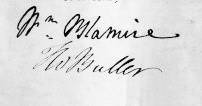 Wm Blamire
Tho Buller